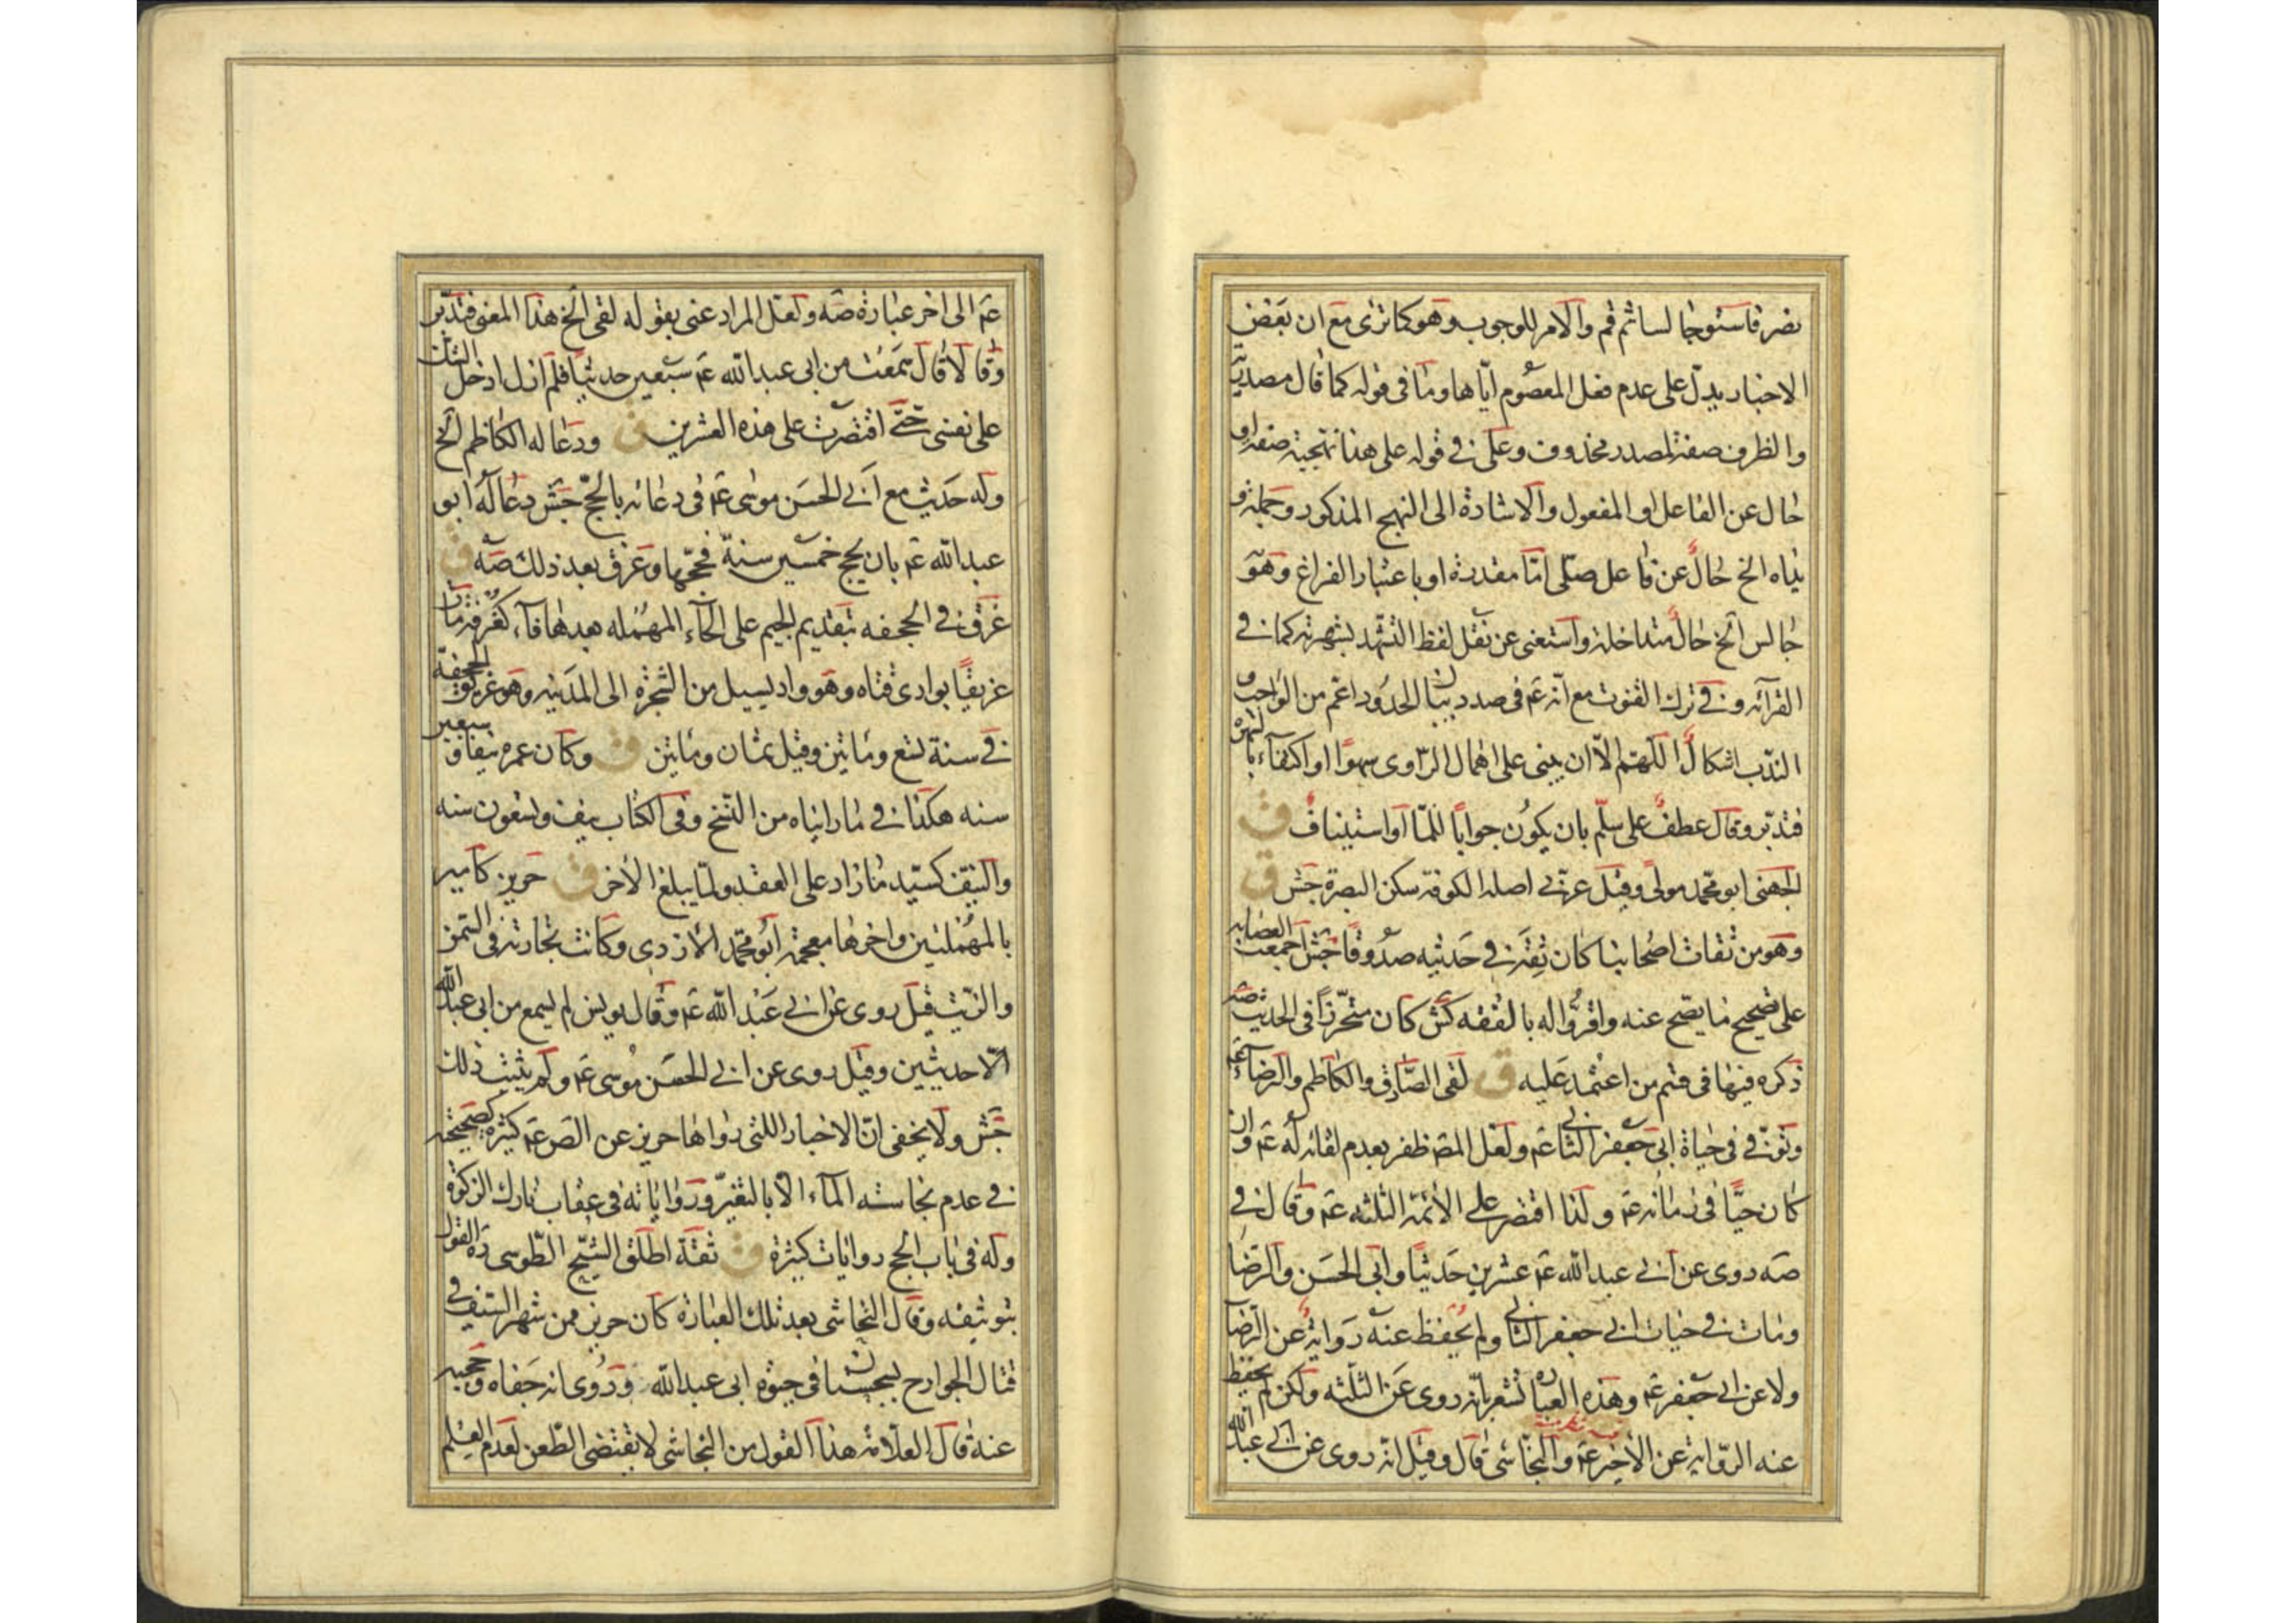 نصرفا ستوجا لساثم قم والامر للوجوب وهو كما ترى مع ان بعض
الاخبار يدل على عدم فعل المعصوم اياها وما فى قوله كما قال مصدرية
والظرف صفة لمصدر محذوف وعلى فى قوله على هذا نهجية صفة او
حال عن الفاعل او المفعول والاشارة الى النهج المذكور وجملة و
يداه الخ حال عن فاعل صلى اما مقدرة او باعتبار الفراغ وهو
جالس الخ حال متداخلة واستغنى عن نقل لفظ التشهد بشهرته كما فى
القرآئة وفى ترك القنوت مع انه عم فى صدد بيان الحدود اعم من الواجب و
الندب اشكال اللهم الا ان يبنى على اهمال الراوى سهوا او اكتفآء بالشهرة
فتدبر وقال عطف على سلم بان يكون جوابا للما او استيناف ق
الجهنى ابو محمد مولى وقيل عربى اصله الكوفة سكن البصرة جش ق
وهو من ثقات اصحابنا كان ثقة فى حديثه صدوقا جش اجمعت العصابه
على تصحيح ما يصح عنه واقروا له بالفقه كش كان متحرزا فى الحديث صه
ذكره فيها فى قسم من اعتمد عليه ق لقى الصادق والكاظم والرضا عم
وتوفى فى حياة ابى جعفر الثانى عم ولعل المص ظفر بعدم لقائه له عم وان
كان حيا فى زمانه عم ولذا اقتصر على الائمة الثلثه عم وقال فى
صه روى عن ابى عبد الله عم عشرين حديثا وابى الحسن والرضا
ومات فى حيات ابى جعفر الثانى ولم يحفظ عنه رواية عن الرضا
ولا عن ابى جعفر عم وهذه العبارة تشعر بانه روى عن الثلثه ولكن لم يحفظ
عنه الرواية عن الاخير عم والنجاشى قال وقيل انه روى عن ابى عبد الله
عم الى اخر عبارة صه ولعل المراد عنى بقوله لقى الخ هذا المعنى فتدبر
وقا لا قال سمعت من ابى عبد الله عم سبعين حديثا فلم ازل ادخل الشك
على نفسى حتى اقتصرت على هذه العشرين ق ودعا له الكاظم الخ
وله حديث مع ابى الحسن موسى عم فى دعائه بالحج جش دعا له ابو
عبد الله عم بان يحج خمسين سنة فحجها وغرق بعد ذلك صه ق
غرق فى الجحفه بتقديم الجيم على الحآء المهمله بعدها فآء كغرفة مات
غريقا بوادى قناه وهو واد يسيل من الشجرة الى المدينه وهو غريق الجحفة
فى سنة تسع ومائتين وقيل ثمان ومائتين ق وكان عمره نيفا و سبعين
سنه هكذا فى ما رايناه من النسخ وفى الكتاب نيف وتسعون سنه
والنيف كسيد ما زاد على العقد ولما يبلغ الاخر ق حريز كامير
بالمهملتين واخرها معجمة ابو محمد الازدى وكانت تجارته فى السمن
والزيت قيل روى عن ابى عبد الله عم وقال يونس لم يسمع من ابى عبد الله
الا حديثين وقيل روى عن ابى الحسن موسى عم ولم يثبت ذلك
جش ولا يخفى ان الاخبار اللتى رواها حريز عن الص عم كثيرة كصحيحته
فى عدم نجاسته المآء الا بالتغير ورواياته فى عقاب تارك الزكوة
وله فى باب الحج روايات كثيرة ق ثقة اطلق الشيخ الطوسى ره القول
بتوثيقه وقال النجاشى بعد تلك العبارة كان حريز ممن شهر السيف فى
قتال الخوارج بسجستان فى حيوة ابى عبد الله وروى انه جفاه وحجبه
عنه قال العلامة هذا القول من النجاشى لا يقتضى الطعن لعدم العلم